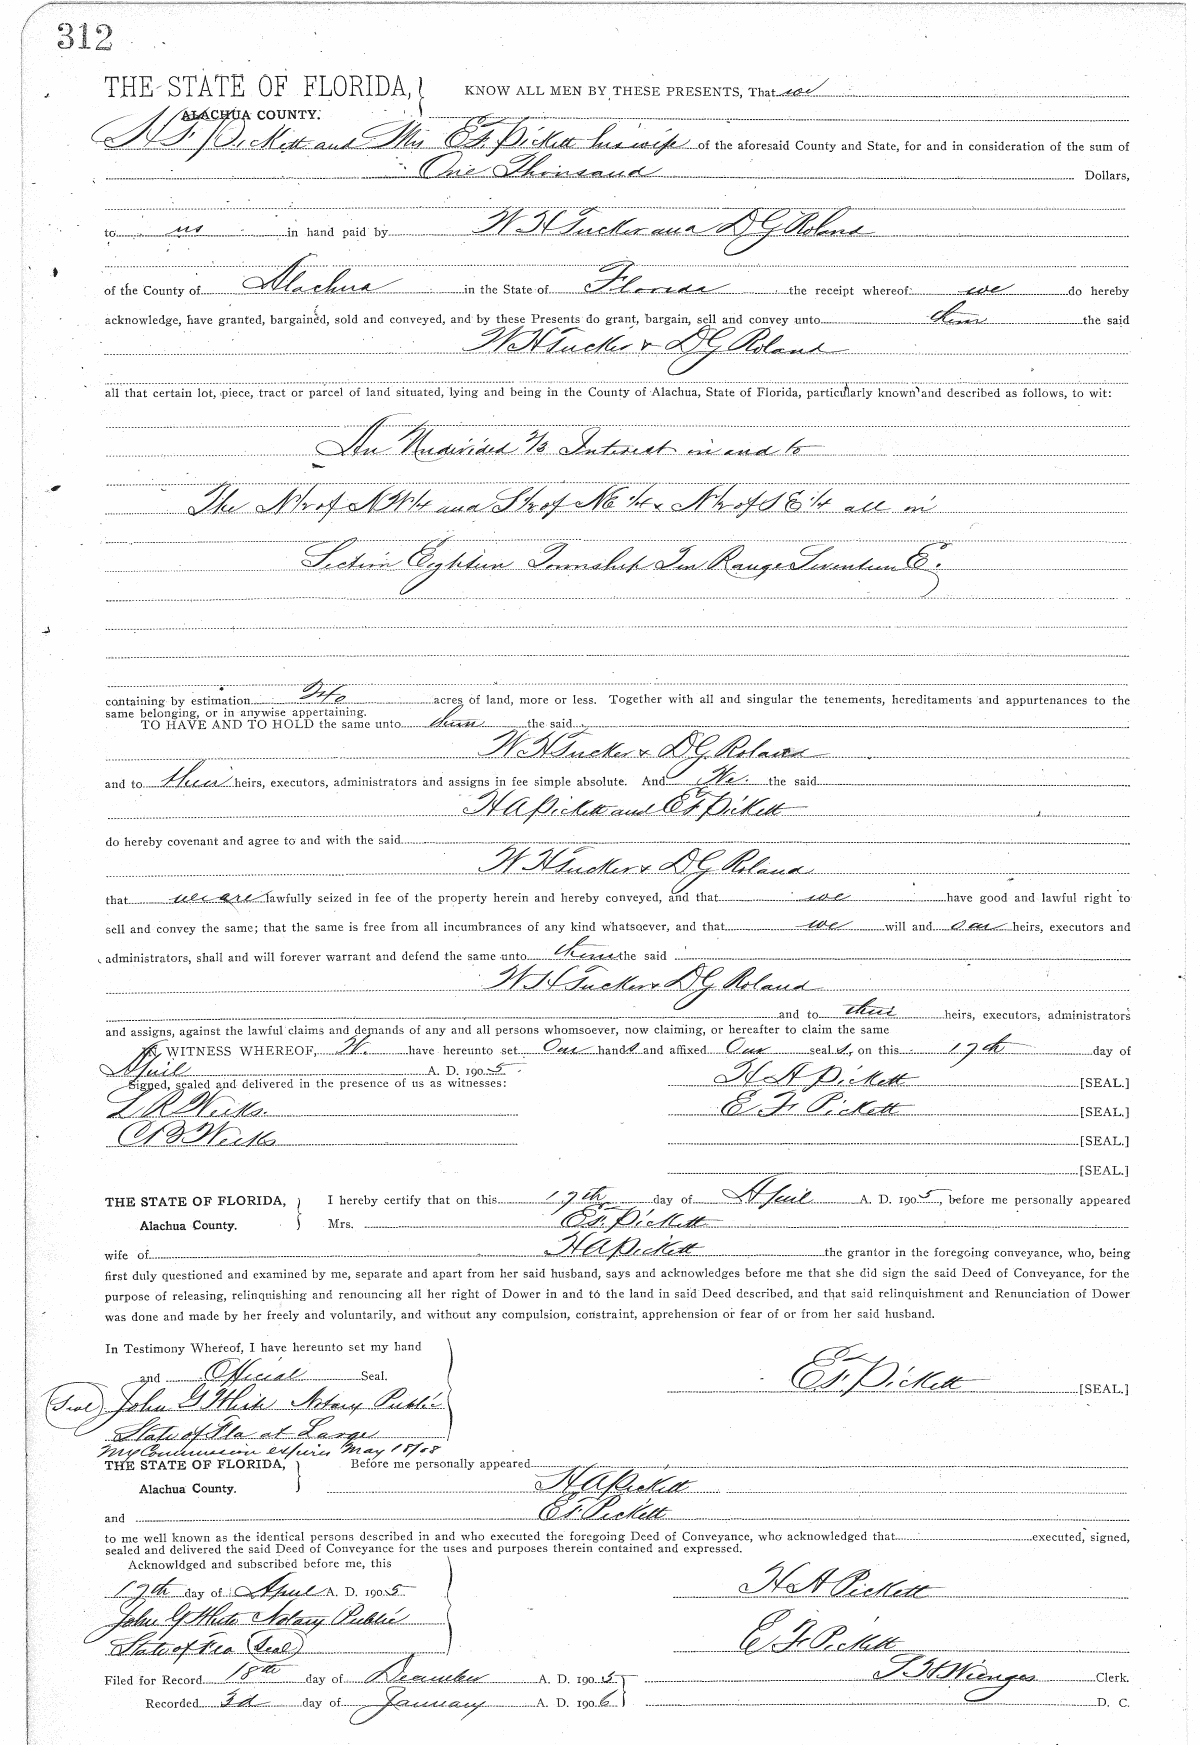 312
THE STATE OF FLORIDA, KNOW ALL MEN BY THESE PRESENTS, That we
ALACHUA COUNTY.
Pickett and Mrs E F Pickett his wife of the aforesaid County and State, for and in consideration of the sum of
One Thousand Dollars,
to us in hand paid by W H Tucker and D G Roland
of the County of Alachua in the State of Florida the receipt whereof we do hereby
acknowledge, have granted, bargained, sold and conveyed, and by these Presents do grant, bargain, sell and convey unto them the said
W H Tucker & D G Roland
all that certain lot, piece, tract or parcel of land situated, lying and being in the County of Alachua, State of Florida, particularly known and described as follows, to wit:
An Undivided 2/3 Interest in and to
The N½ of NW¼ and S½ of NE ¼ & N½ of SE ¼ all in
Section Eighteen Township Ten Range Seventeen E.
containing by estimation 240 acres of land, more or less. Together with all and singular the tenements, hereditaments and appurtenances to the
same belonging, or in anywise appertaining.
TO HAVE AND TO HOLD the same unto them the said
W H Tucker & D G Roland
and to their heirs, executors, administrators and assigns in fee simple absolute. And We the said
H A Pickett and E F Pickett
do hereby covenant and agree to and with the said
W H Tucker & D G Roland
that we are lawfully seized in fee of the property herein and hereby conveyed, and that we have good and lawful right to
sell and convey the same; that the same is free from all incumbrances of any kind whatsoever, and that we will and our heirs, executors and
administrators, shall and will forever warrant and defend the same unto them the said
W H Tucker & D G Roland
and to their heirs, executors, administrators
and assigns, against the lawful claims and demands of any and all persons whomsoever, now claiming, or hereafter to claim the same
IN WITNESS WHEREOF, We have hereunto set Our hands and affixed Our seal s, on this 17th day of
April A. D. 1905.
Signed, sealed and delivered in the presence of us as witnesses: H A Pickett [SEAL.]
L R Weeks. E F Pickett [SEAL.]
C B Weeks [SEAL.]
[SEAL.]
THE STATE OF FLORIDA, I hereby certify that on this 17th day of April A. D. 1905, before me personally appeared
Alachua County. Mrs. E F Pickett
wife of H A Pickett the grantor in the foregoing conveyance, who, being
first duly questioned and examined by me, separate and apart from her said husband, says and acknowledges before me that she did sign the said Deed of Conveyance, for the
purpose of releasing, relinquishing and renouncing all her right of Dower in and to the land in said Deed described, and that said relinquishment and Renunciation of Dower
was done and made by her freely and voluntarily, and without any compulsion, constraint, apprehension or fear of or from her said husband.
In Testimony Whereof, I have hereunto set my hand
and Official Seal. E F Pickett [SEAL.]
Seal John G White Notary Public
State of Fla at Large
My Commission expires May 18/08
THE STATE OF FLORIDA, Before me personally appeared
Alachua County. H A Pickett
and E F Pickett
to me well known as the identical persons described in and who executed the foregoing Deed of Conveyance, who acknowledged that executed, signed,
sealed and delivered the said Deed of Conveyance for the uses and purposes therein contained and expressed.
Acknowldged and subscribed before me, this
17th day of April A. D. 1905 H A Pickett
John G White Notary Public
State of Fla Seal E F Pickett
Filed for Record 18th day of December A. D. 1905 S H Wienges Clerk.
Recorded 3d day of January A. D. 1906 D. C.